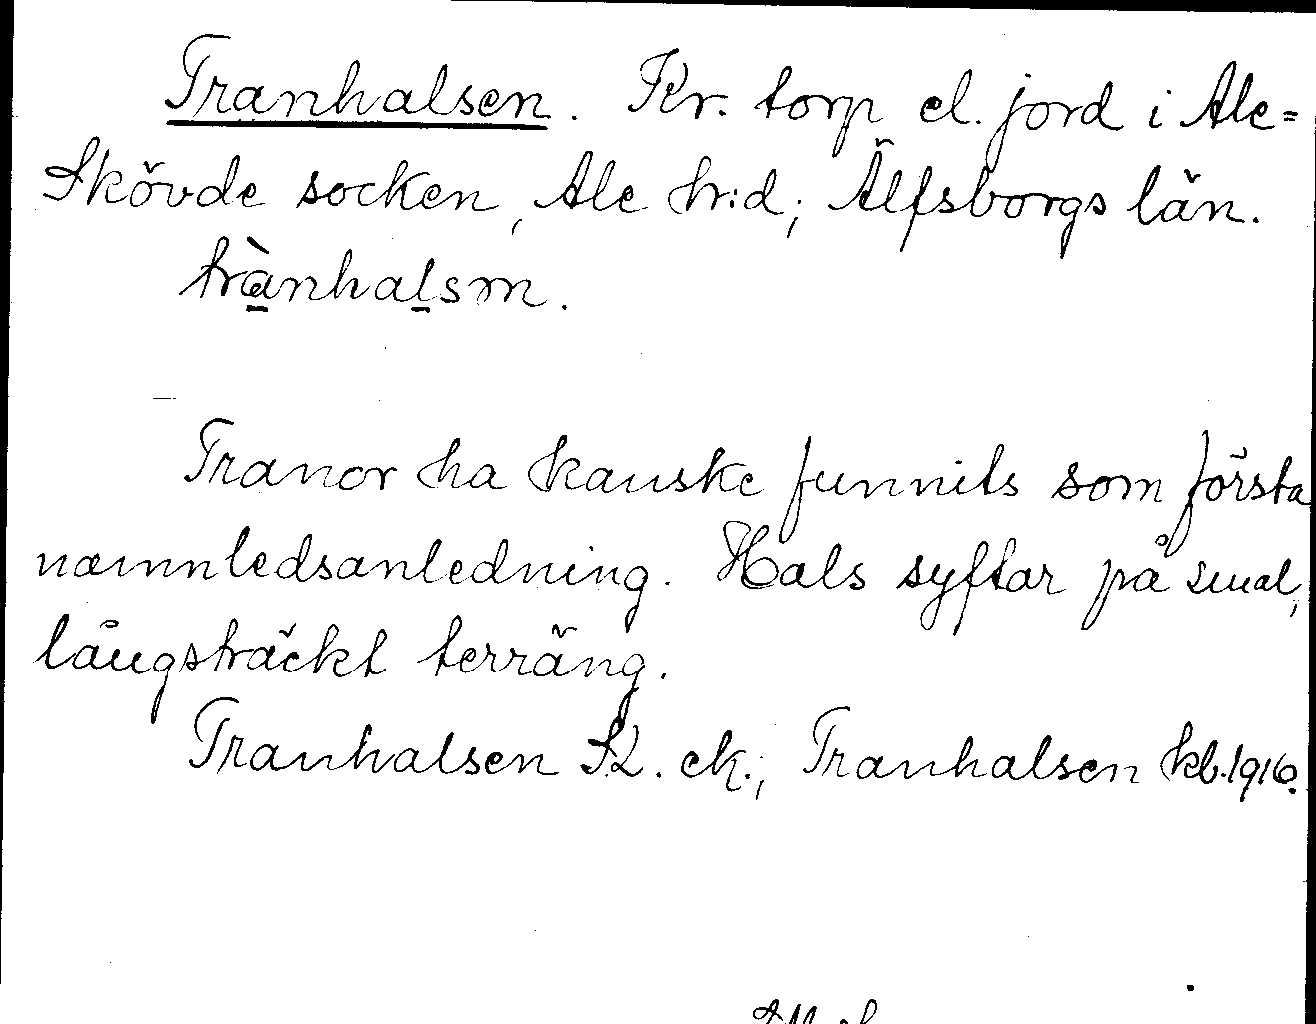 Tranhalsen. Kr. torp el. jord i Ale=
Skövde socken, Ale hr:d, Älfsborgs län.
trànhalsm.
Tranor ha kanske funnits som första
namnledsanledning. Hals syftar på smal,
långsträckt terräng.
Tranhalsen ek.; Tranhalsen kb. 1916.